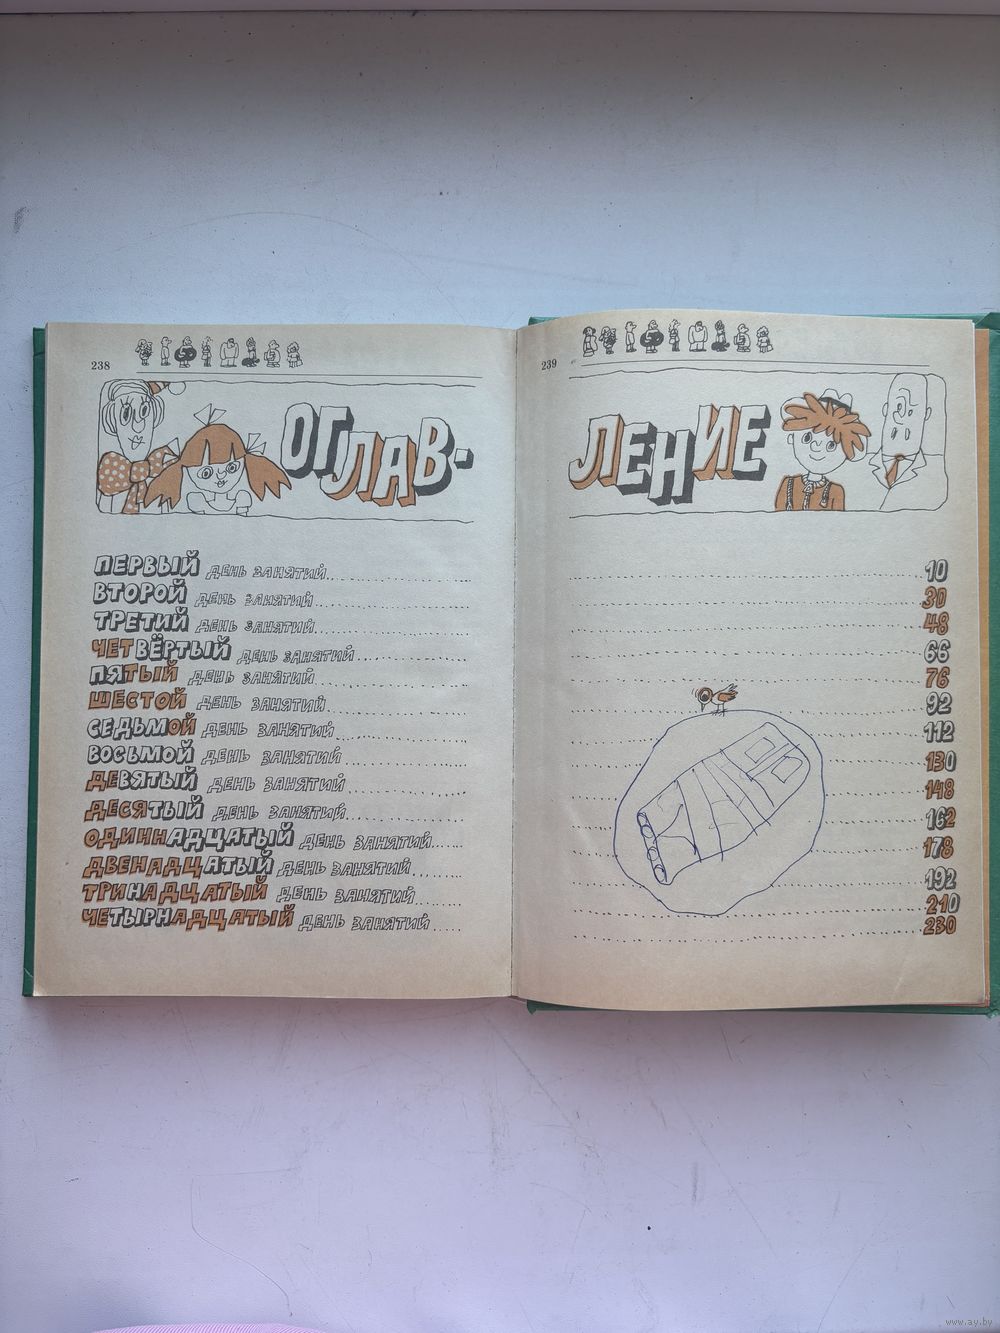 238
239
ОГЛАВ-
ЛЕНИЕ
ПЕРВЫЙ ДЕНЬ ЗАНЯТИЙ 10
ВТОРОЙ ДЕНЬ ЗАНЯТИЙ 30
ТРЕТИЙ ДЕНЬ ЗАНЯТИЙ 48
ЧЕТВЁРТЫЙ ДЕНЬ ЗАНЯТИЙ 66
ПЯТЫЙ ДЕНЬ ЗАНЯТИЙ 76
ШЕСТОЙ ДЕНЬ ЗАНЯТИЙ 92
СЕДЬМОЙ ДЕНЬ ЗАНЯТИЙ 112
ВОСЬМОЙ ДЕНЬ ЗАНЯТИЙ 130
ДЕВЯТЫЙ ДЕНЬ ЗАНЯТИЙ 148
ДЕСЯТЫЙ ДЕНЬ ЗАНЯТИЙ 162
ОДИННАДЦАТЫЙ ДЕНЬ ЗАНЯТИЙ 178
ДВЕНАДЦАТЫЙ ДЕНЬ ЗАНЯТИЙ 192
ТРИНАДЦАТЫЙ ДЕНЬ ЗАНЯТИЙ 210
ЧЕТЫРНАДЦАТЫЙ ДЕНЬ ЗАНЯТИЙ 230
www.ay.by